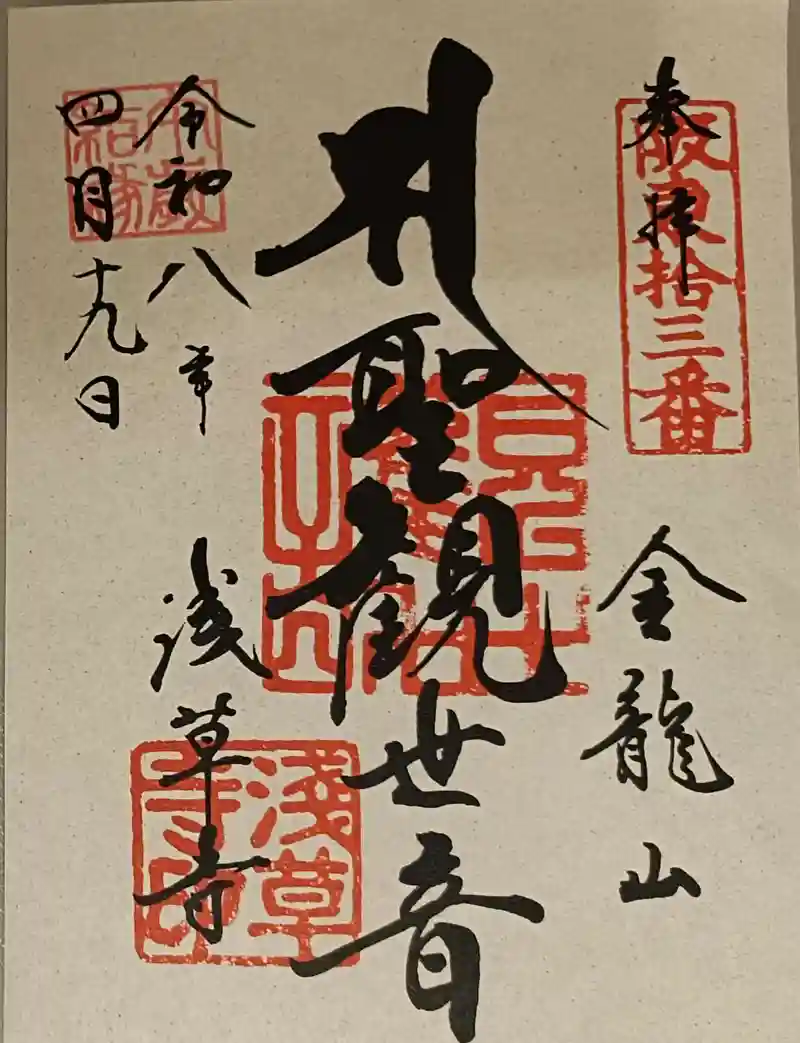 奉拝
阪東拾三番
金龍山
聖観世音
令和八年
四月十九日
浅草寺
淺草寺印